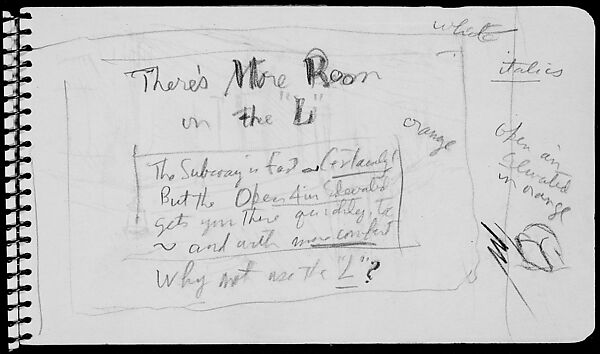 white
There's More Room
on the "L"
italics
orange
The Subway is Fast — Certainly!
But the Open Air Elevated
gets you there quickly, too
~ and with more comfort
Why not use the "L"?
open air
elevated
in orange